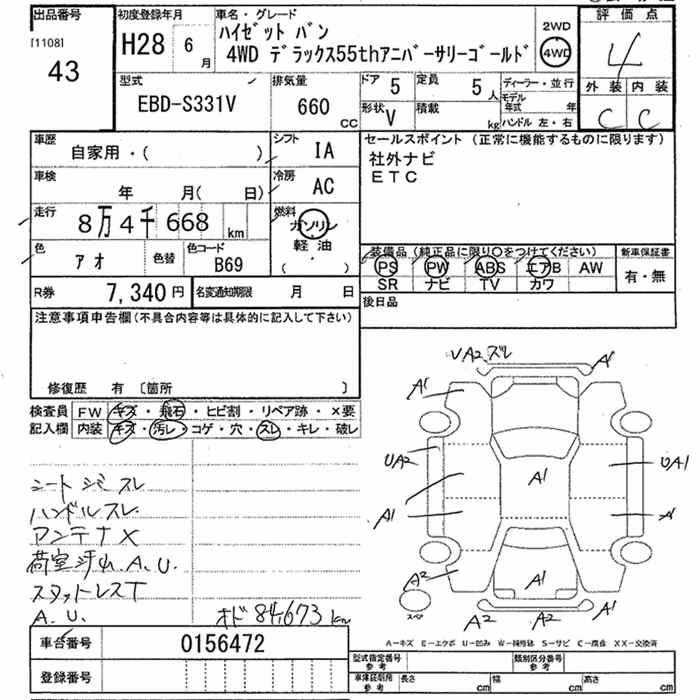 出品番号 初度登録年月 車名・グレード 評価点
[1108] 43 H28 6月 ハイゼット バン 2WD 4
4WD デラックス55thアニバーサリーゴールド 4WD
外装 内装
C C
型式 排気量 ドア 5 定員 5人 ディーラー・並行
EBD-S331V 660 CC 形状 V 積載 kg モデル年式 年
ハンドル 左・右
車歴 シフト セールスポイント (正常に機能するものに限ります)
自家用・( ) IA 社外ナビ
車検 冷房 ETC
年 月(日) AC
走行 燃料
8万4千668 km ガソリン
軽油
( )
色 アオ 色替 色コード B69
装備品 (純正品に限り〇をつけてください) 新車保証書
PS PW ABS エアB AW 有・無
SR ナビ TV カワ
R券 7,340円 名変通知期限 月 日 後日品
注意事項申告欄(不具合内容等は具体的に記入して下さい)
修復歴 有 〔箇所 〕
検査員 FW キズ・飛石・ヒビ割・リペア跡・×要
記入欄 内装 キズ・汚レ・コゲ・穴・スレ・キレ・破レ
UA2 ズレ A1
A1
UA2 A1 UA1
A1 A1
A2 A1 A1
スペア A2 A2
シート シミ スレ
ハンドルスレ
アンテナX
荷室汚レ A.U.
スタットレスT
A.U. オド 84,673 km
車台番号 0156472
登録番号
A-キズ E-エクボ U-凹み W-補修跡 S-サビ C-腐食 XX-交換済
型式指定番号 参考 類別区分番号 参考
車庫証明用 参考 長さ cm 幅 cm 高さ cm